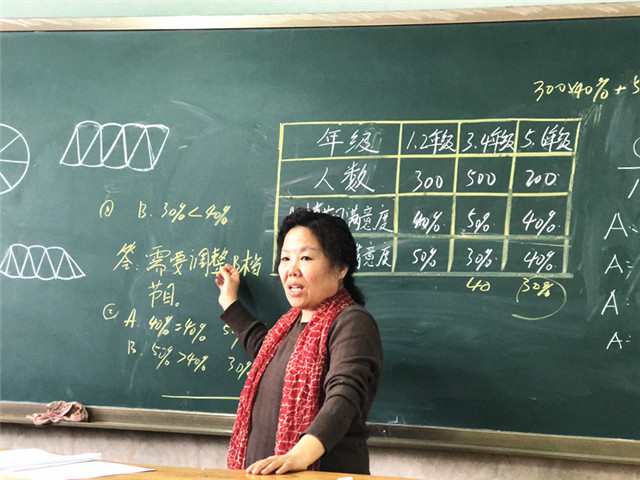 300×40%+5
年级 1.2年级 3.4年级 5.6年级
人数 300 500 200
满意度 40% 50% 40%
意度 50% 30% 40%
40 30%
① B. 30%<40%
答: 需要调整B档
节目.
② A. 40%=40% 5
B. 50%>40% 30%
A:
A:
A:
A: